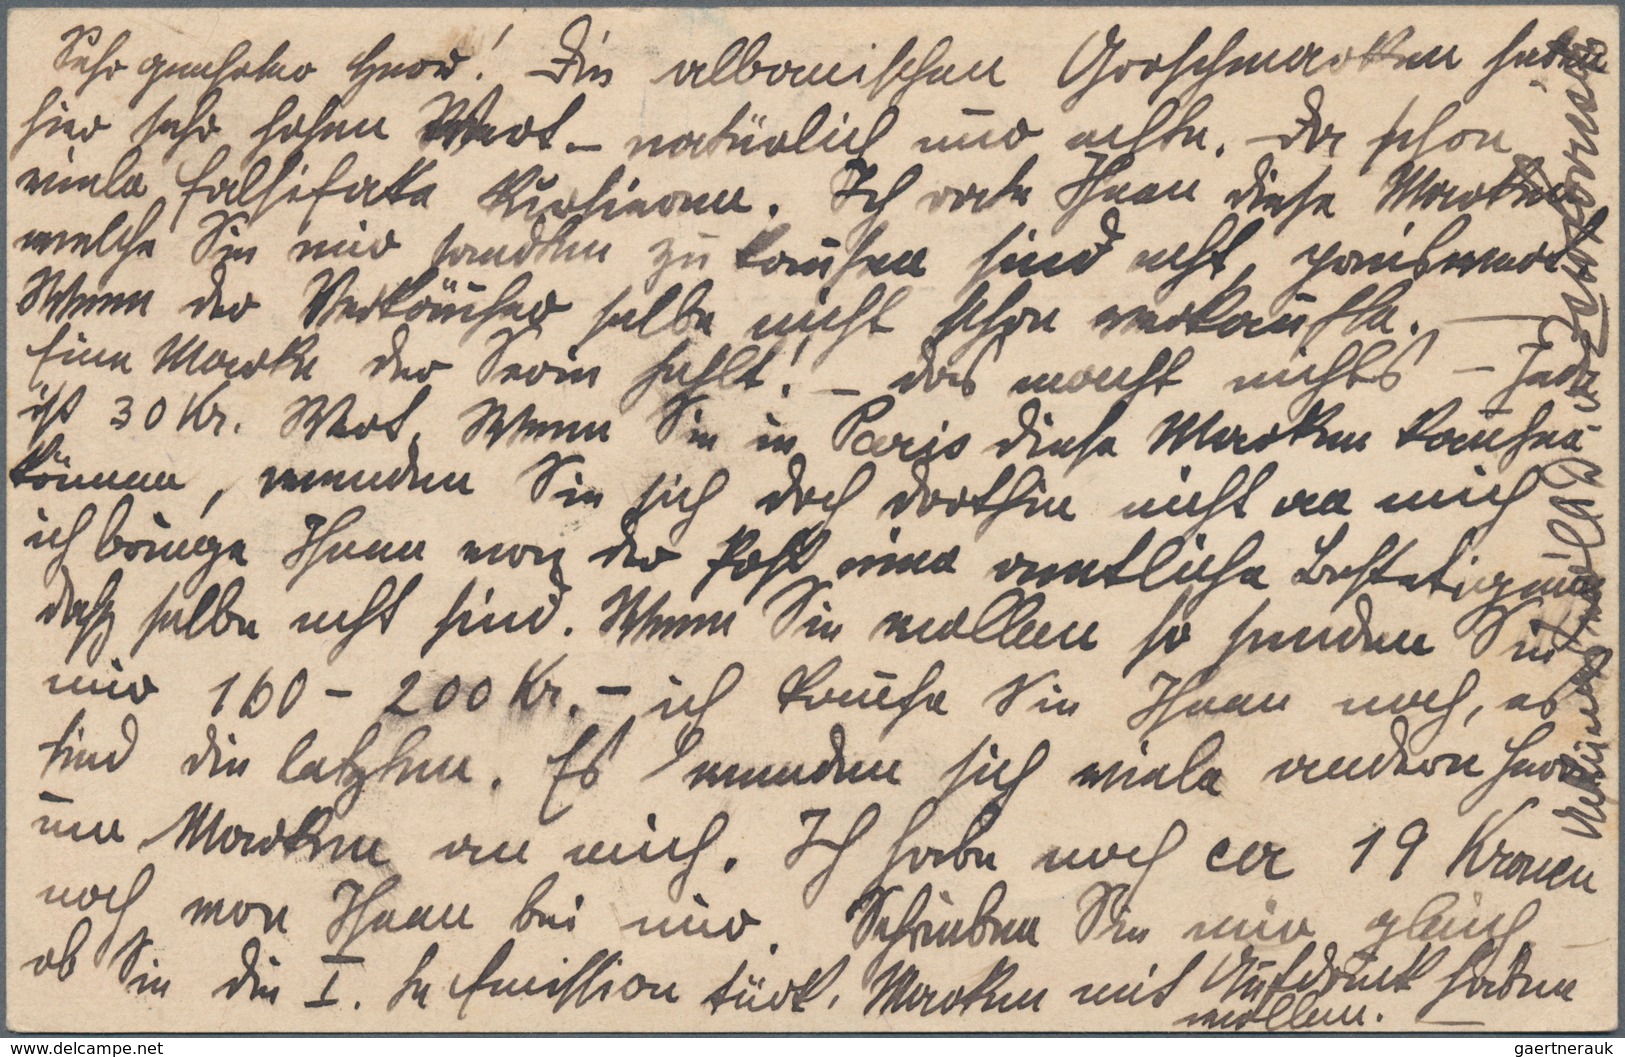 Sehr geehrter Herr! Die albanischen Groschmarken haben
hier sehr hohen Wert – natürlich nur echte. Da schon
viele Falsifikate kursieren. Ich rate Ihnen diese Marken
welche Sie mir sandten zu kaufen sind echt, preiswert
Wenn der Verkäufer selbe nicht schon verkaufte. —
Eine Marke der Serie fehlt! – das macht nichts – Jede
ist 30 Kr. Wert. Wenn Sie in Paris diese Marken kaufen
können, wenden Sie sich doch dorthin nicht an mich
ich bringe Ihnen von der Post eine amtliche Bestetigung
daß selbe echt sind. Wenn Sie wollen so senden Sie
mir 160 – 200 Kr. – ich kaufe Sie Ihnen noch, es
sind die letzten. Es wenden sich viele andern Herrn
um Marken an mich. Ich habe noch cca 19 Kronen
noch von Ihnen bei mir. Schreiben Sie mir gleich
ob Sie die I. te Emission türk. Marken mit Aufdruck haben
wollen. —